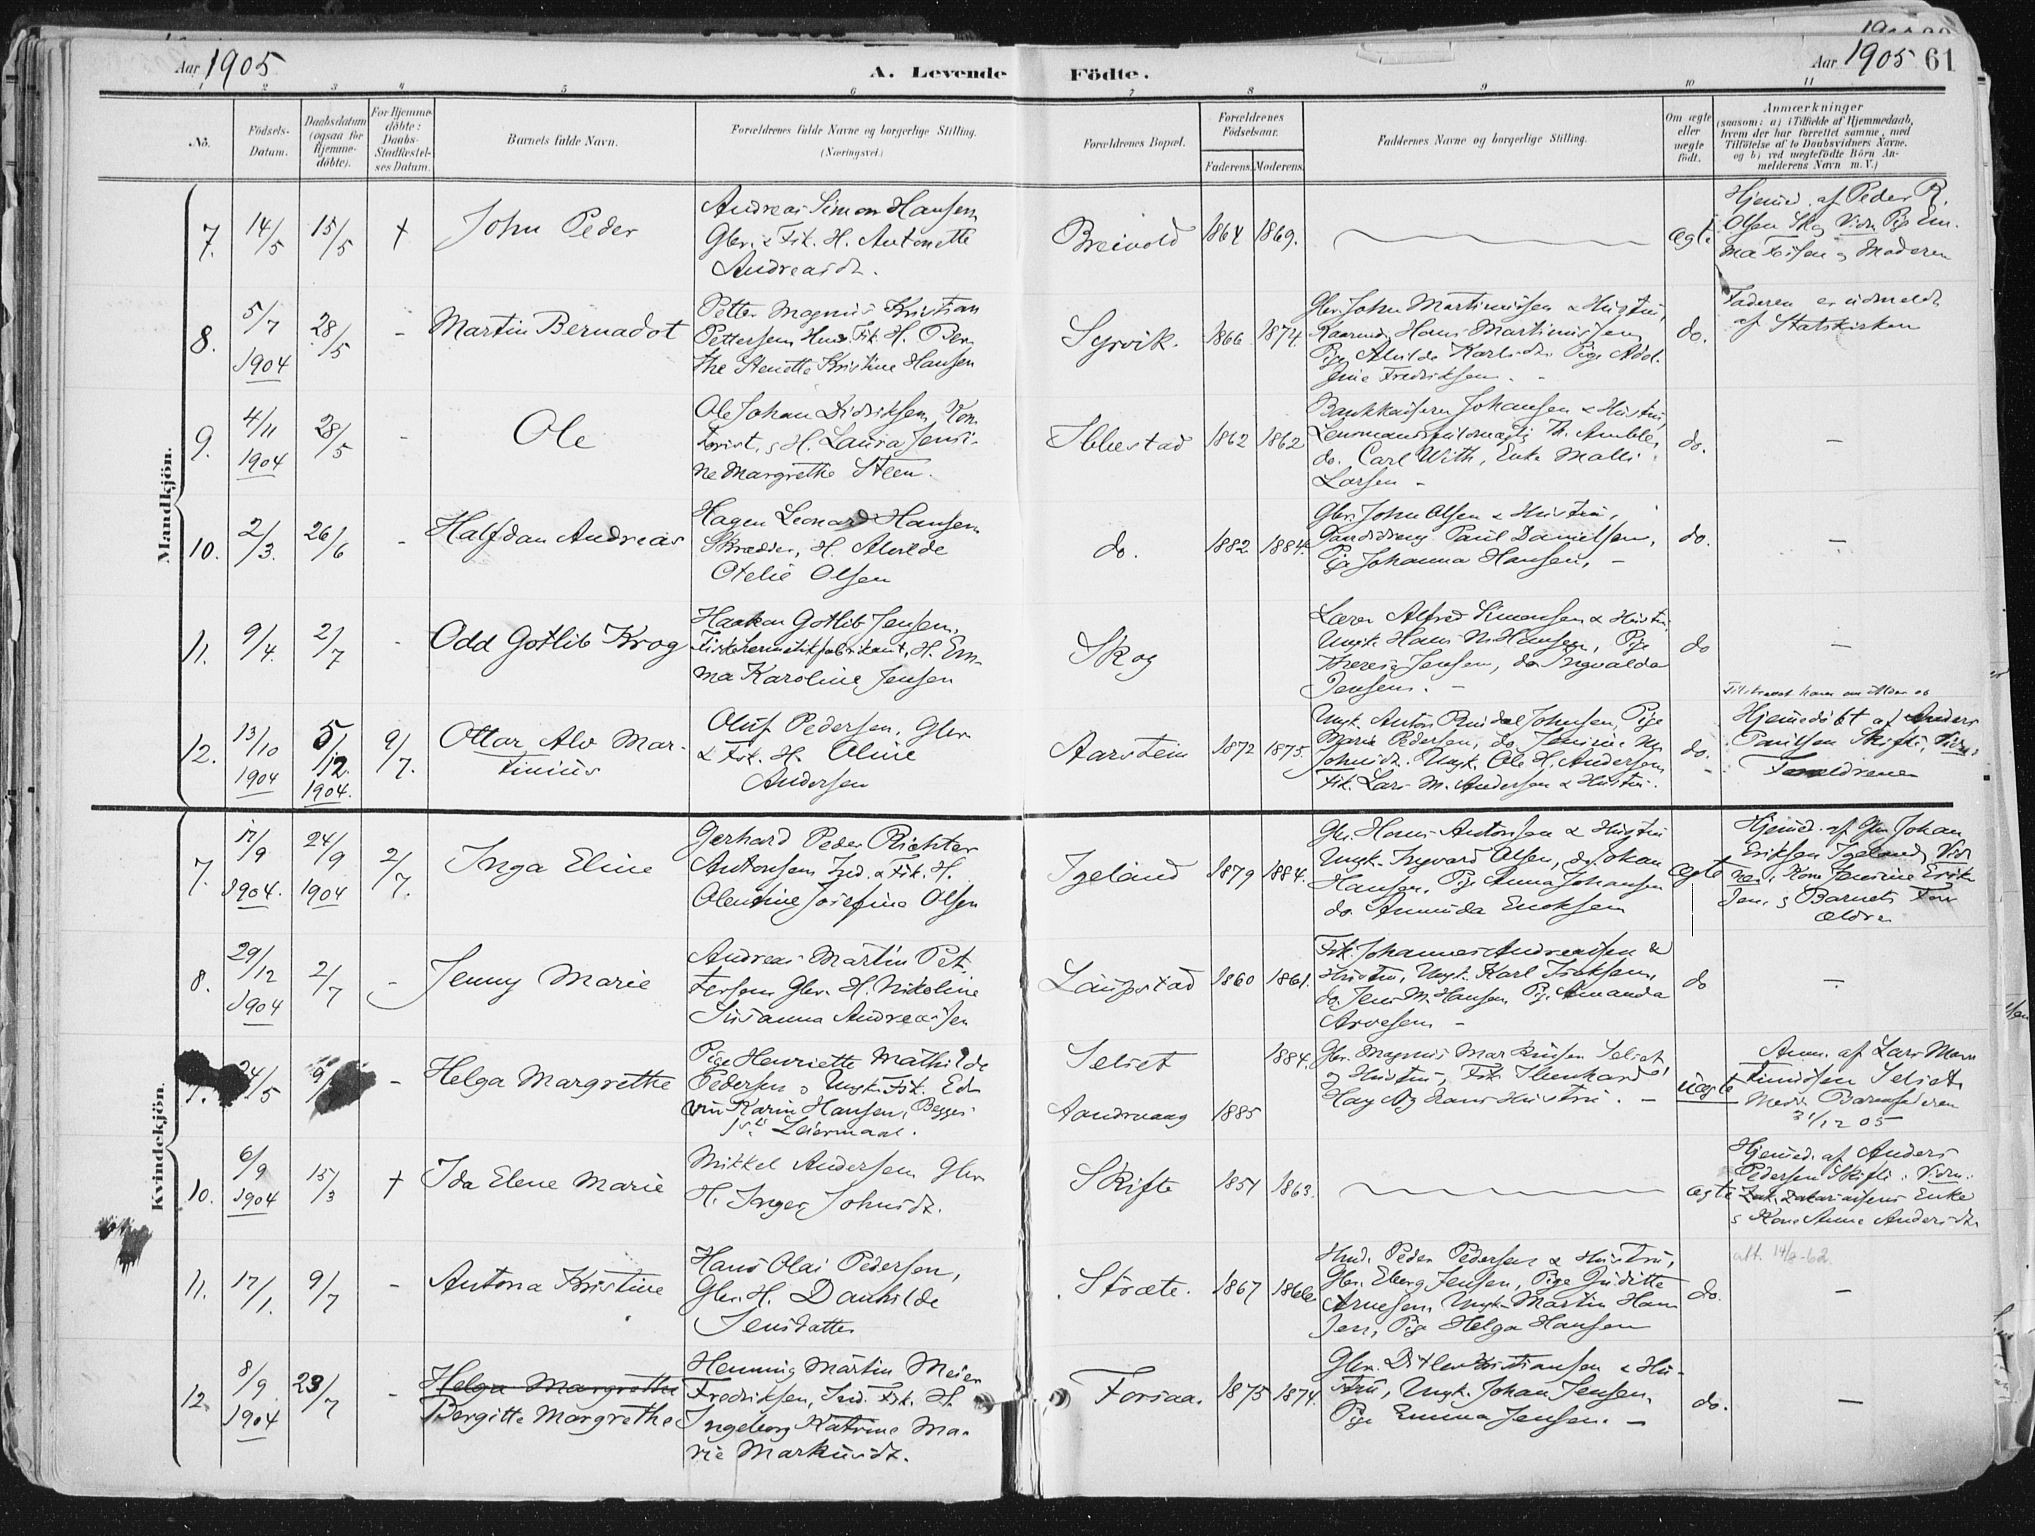 Aar 1905
A. Levende Födte.
Aar 1905 61
1 2 3 4 5 6 7 8 9 10 11
No.
Födsels-
Datum.
Daabsdatum
(ogsaa for
Hjemme-
döbte).
For Hjemme-
döbte:
Daabs-
Stadfæstel-
ses Datum.
Barnets fulde Navn.
Forældrenes fulde Navne og borgerlige Stilling.
(Næringsvei.)
Forældrenes Bopæl.
Forældrenes
Födselsaar.
Faderens. Moderens.
Faddernes Navne og borgerlige Stilling.
Om ægte
eller
uægte
födt.
Anmærkninger
(saasom: a) i Tilfælde af Hjemmedaab,
hvem der har forrettet samme, med
Tilföielse af to Daabsvidners Navne.
og b) ved uægtefödte Börn An-
melderens Navn m. V.)
Mandkjön.
7. 14/5 15/5 + John Peder
Andreas Simon Hansen
Gbr. & Fisk. H. Antonette
Andreasdt.
Breivold 1864 1869.
ægte
Hjemmed. af Peder R.
Olsen Skog Vidn. Pige Em-
ma Olsen og Moderen
8. 5/7 1904 28/5 - Martin Bernadot
Petter Magnus Kristian
Pettersen Hmd. Fisk. H. Ber-
the Stenette Kristine Hansen
Syrvik. 1866 1874.
Gbr. John Martinussen & Hustru,
Hans Martinussen
Pige Alvilde Karlsdt. Pige Adol-
fine Fredriksen. -
do.
Faderen er udmeldt
af Statskirken
9. 4/11 1904 28/5 - Ole
Ole Johan Didriksen, Kon-
torist, & H. Laura Jensi-
ne Margrethe Steen.
Ibbestad 1862 1862
Bankkasserer Johansen & Hustru,
Lensmandsfuldmægtig Th. Amble,
do. Carl With, Enke Malli
Larsen -
do. -
10. 2/3. 26/6 - Halfdan Andreas
Hagen Leonard Hansen
Skrædder, H. Alvilde
Otelie Olsen
do. 1882 1884.
Gbr. John Olsen & Hustru,
Paul Danielsen,
Pige Johanna Hansen, -
do. -
11. 9/4. 2/7 - Odd Gotlib Krog
Haakon Gotlib Jensen,
Fiskehermetikfabrikant, H. Em-
ma Karoline Jensen
Skog
Lærer Alfred Simonsen & Hustru,
Ungk. Hans N. Hansen, Pige
Theresia Jensen, do Ingvalda
Jensen. -
do -
12. 13/10 1904 5/12. 1904. 9/7. Ottar Alv Mar-
tinius
Oluf Pedersen, Gbr.
& Fisk. H. Oline
Andersen
Aarstein 1872 1875.
Ungk. Anton Johnsen, Pige
Marie Pedersen, do Jensine M.
Johnsdt. Ungk. Ole H. Andersen
Fisk. Lars M. Andersen & Hustru.
do.
Hjemmedöbt af Anders
Paulsen Skifte, Vidn.
Forældrene
Kvindekjön.
7. 17/9 1904. 24/9 1904 2/7. Inga Eline
Gerhard Peder Richter
Antonsen Ind. & Fisk. H.
Olentine Josefine Olsen
Igeland 1879 1884.
Gbr. Hans Antonsen & Hustru
Ungk. Ingvard Olsen, do. Johan
Hansen, Pige Anna Johansen
do. Amunda Enoksen
ægte
Hjemmed. af Gbr. Johan
Eriksen Igeland, Vid-
ner, Kone Jensine Erik-
sen, & Barnets For-
ældre
8. 29/12 1904 2/7 - Jenny Marie
Andreas Martin Pet-
tersen Gbr. H. Nikoline
Susanna Andreassen
Laupstad 1860 1861.
Fisk. Johannes Andreassen &
Hustru, Ungk. Karl Isaksen,
do. Jens M. Hansen Pige Amanda
Arvesen -
do -
24/5 9/ - Helga Margrethe
Pige Henriette Mathilde
Pedersen & Ungk. Fisk. Ed-
vin Karin Hansen, Begges
1ste Leiermaal.
Selset 1884.
Aandervaag 1885
Gbr. Magnus Markussen Selset
og Hustru, Fisk.
Hay og hans Hustru. -
uægte
Anm. af Lars Mar-
tinussen Selset
Medd. Barnefaderen
31/12 05
10. 6/9 1904 15/3 + Ida Elene Marie
Mikkel Andersen Gbr.
H. Inger Johnsdt.
Skifte 1851 1863.
ægte
Hjemmed. af Anders
Pedersen Skifte. Vidn.
Zakariassens Enke
& Kone Anne Andersdt.
11. 17/1. 9/7 - Antona Kristine
Hans Olai Pedersen,
Gbr. H. Danhilde
Jensdatter
Stræte. 1867 1866
Hmd. Peder Pedersen & Hustru,
Gbr. Eberg Jensen, Pige Juditte
Arnesen, Ungk. Martin Han-
sen, Pige Helga Hansen
do. -
att. 14/2-62
12. 8/9 1904 23/7 - Helga Margrethe
Bergitte Margrethe
Henning Martin Meier
Fredriksen, Ind. Fisk. H.
Ingeborg Katrine Ma-
rie Markusdt.
Forsaa. 1875 1874.
Gbr. Ditlev Kristiansen & Hu-
stru, Ungk. Johan Jensen,
Pige Emma Jensen. -
do. -